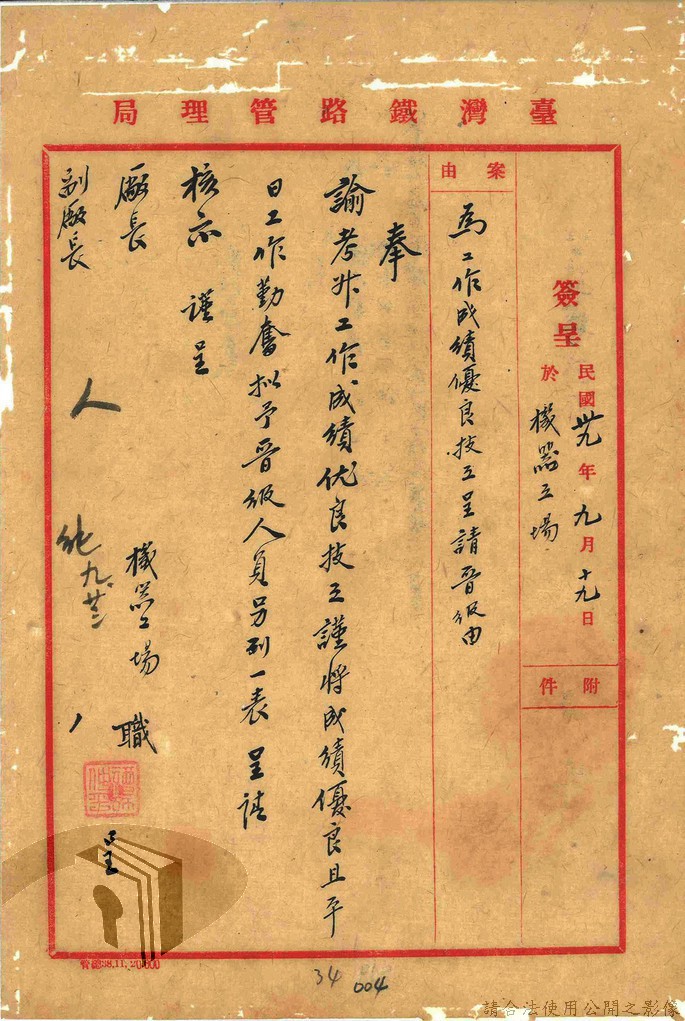 臺灣鐵路管理局
簽呈
民國卅九年九月十九日
於機器工場
附件
案由
為工作成績優良技工呈請晉級由
奉
諭考升工作成績优良技工謹將成績優良且平
日工作勤奮拟予晉級人員另列一表呈請
核示 謹呈
廠長
副廠長
機器工場 職
呈
九廿三
管總38.11.20,000
34
004
請合法使用公開之影像